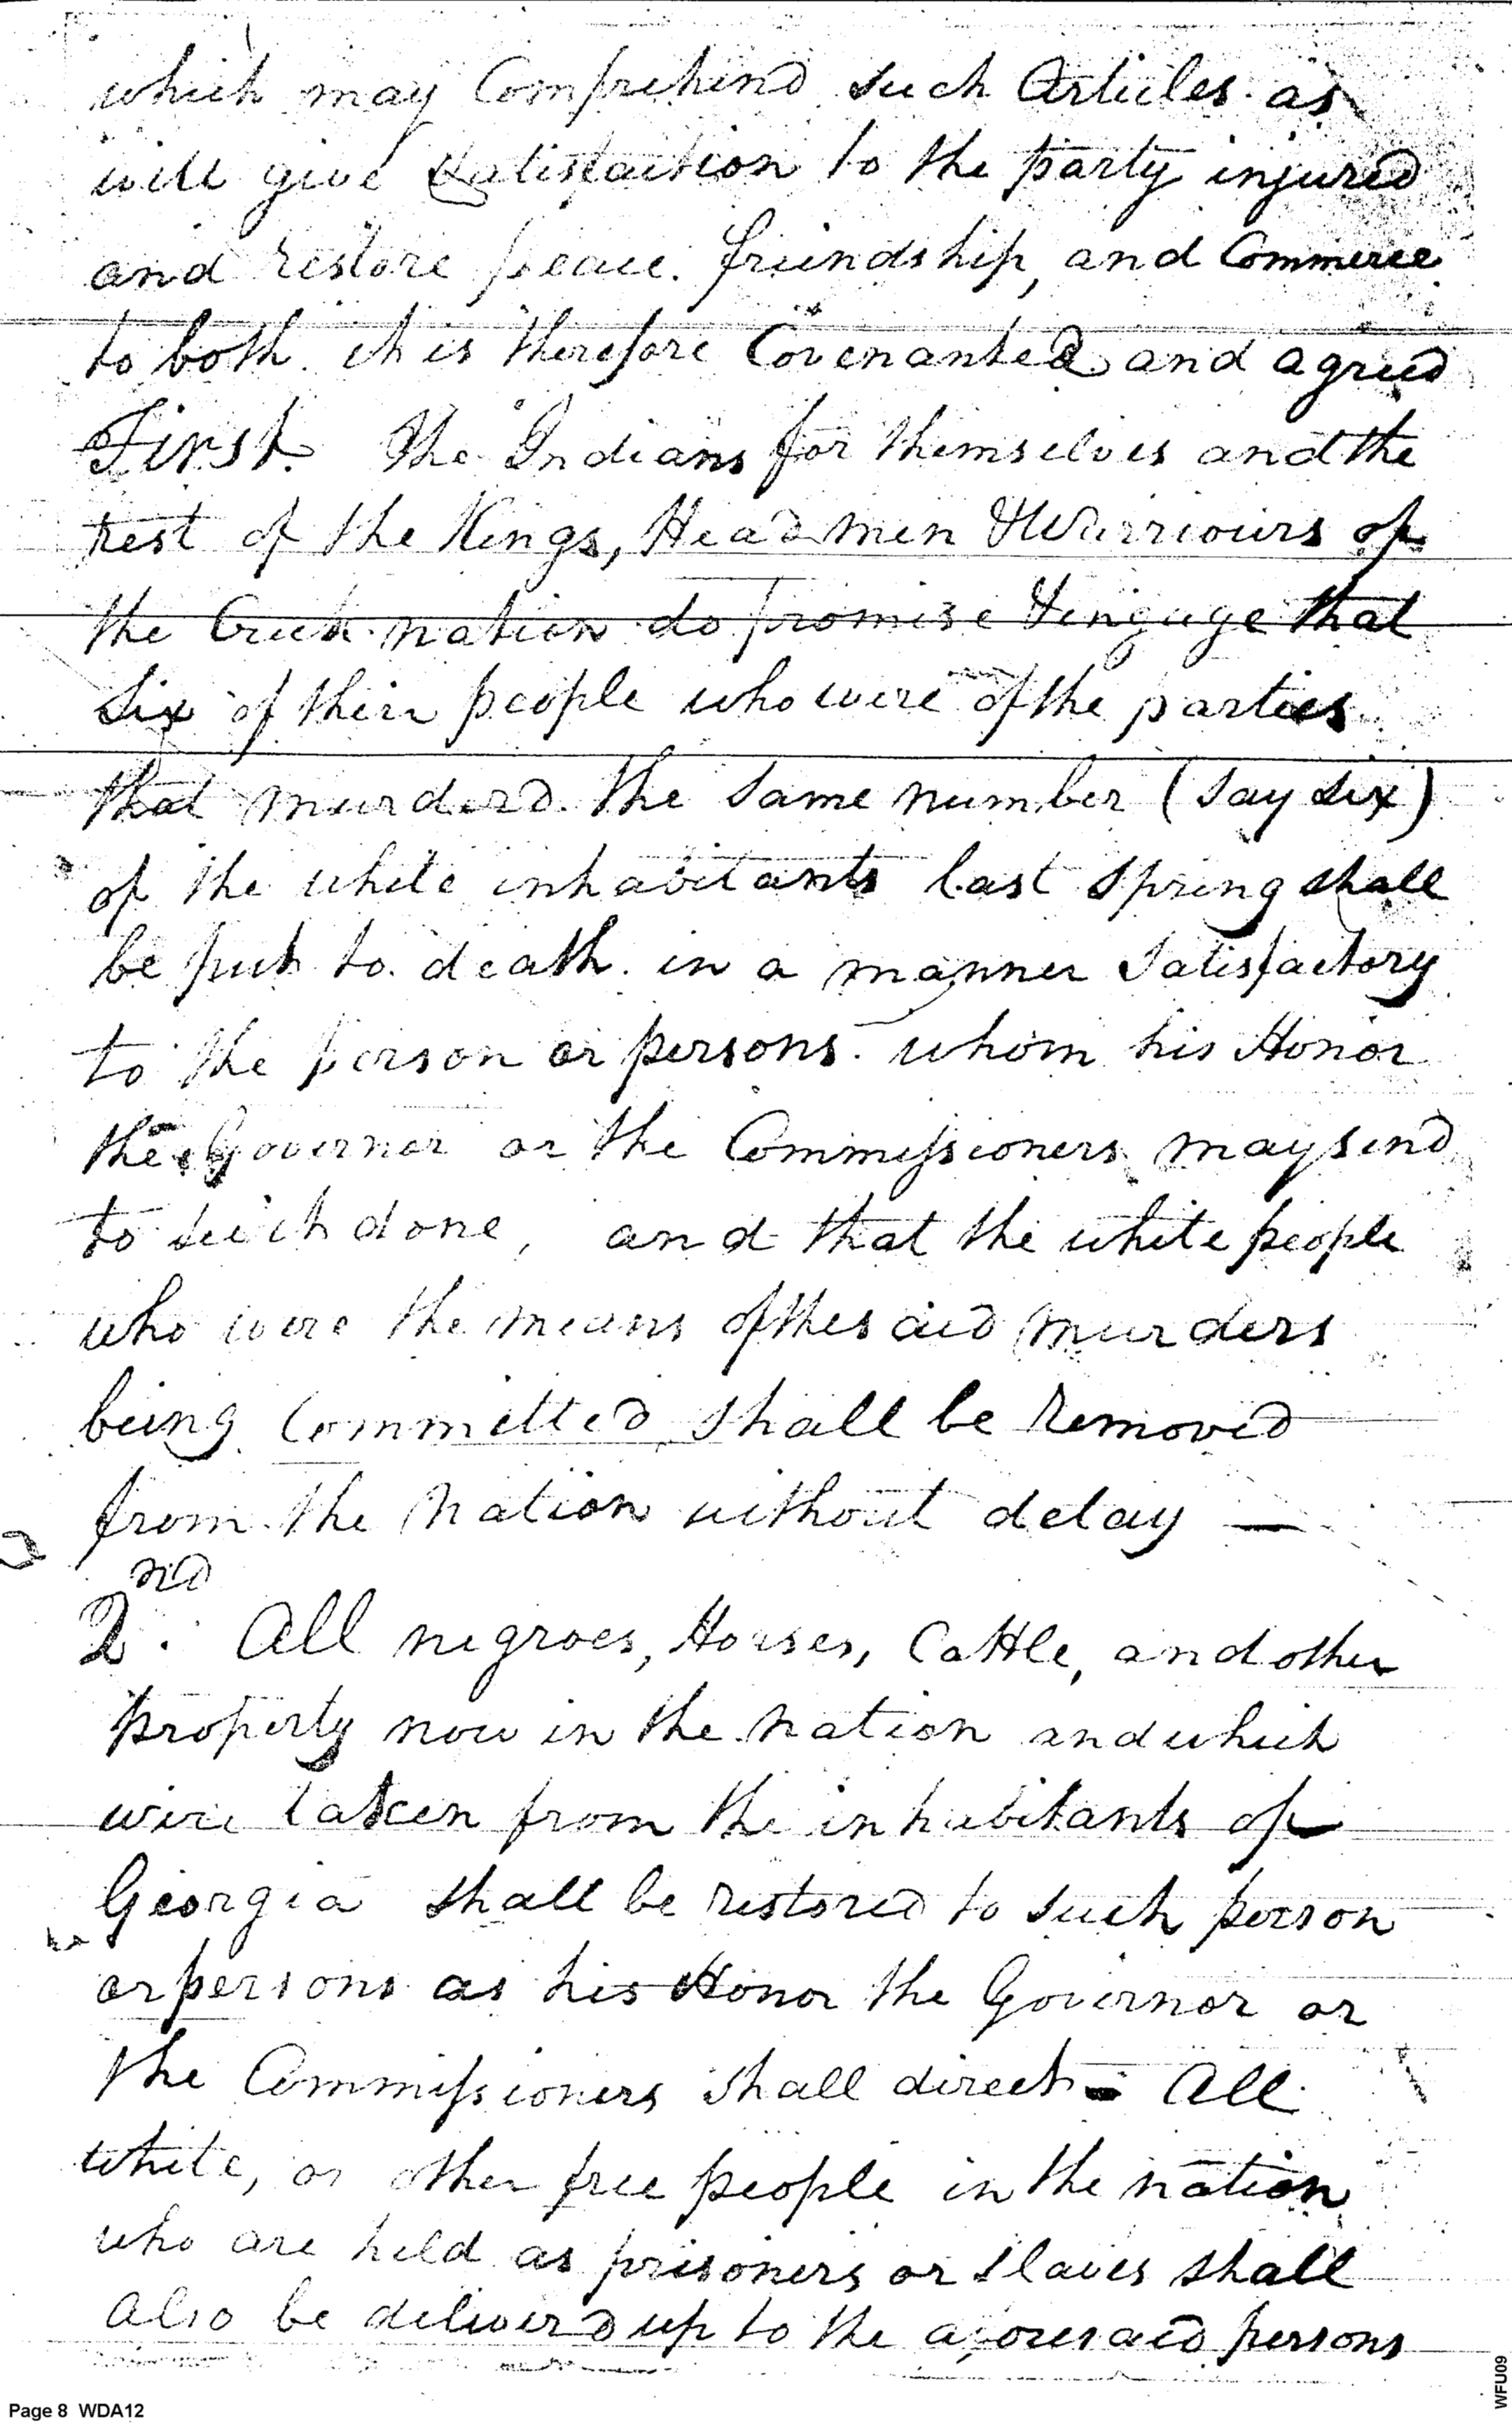 which may Comprehend such Articles as
will give Satisfaction to the party injured
and restore peace. friendship, and Commerce
to both. it is therefore Covenanted and agreed
First. The Indians for themselves and the
rest of the Kings, Head men & Warriours of
the Creek nation do promise & engage that
Six of their people who were of the parties
that murderd the same number (say six)
of the white inhabitants last spring shall
be put to death in a manner Satisfactory
to the person or persons whom his Honor
the Governor or the Commissioners may send
to see it done, and that the white people
who were the means of the said murders
being Committed shall be removed
from the Nation without delay —
2nd. All negroes, Horses, Cattle, and other
property now in the nation and which
were taken from the inhabitants of
Georgia shall be restored to such person
or persons as his Honor the Governor or
the Commissioners shall direct - All
white, or other free people in the nation
who are held as prisoners or slaves shall
also be deliverd up to the aforesaid persons
Page 8 WDA12
WFU09